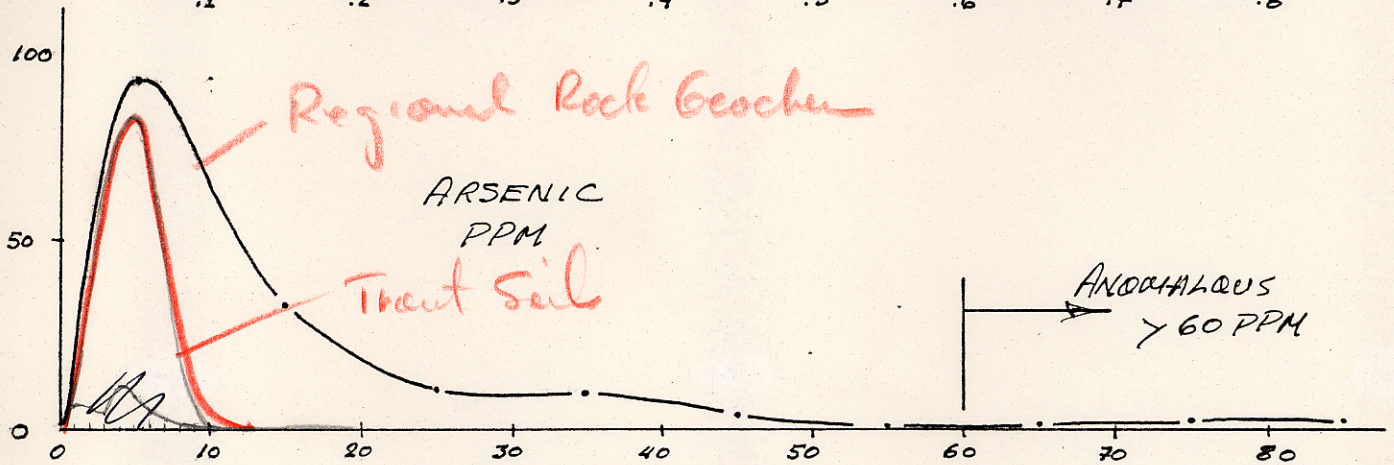 .1 .2 .3 .4 .5 .6 .7 .8
100
Regional Rock Geochem
ARSENIC
PPM
50
Trout Soil
ANOMALOUS
> 60 PPM
0
0 10 20 30 40 50 60 70 80